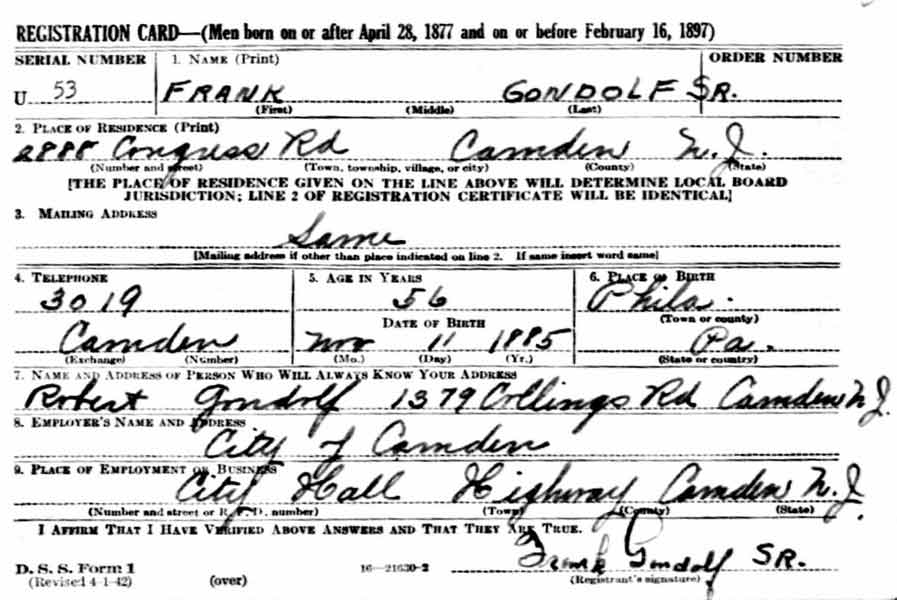 REGISTRATION CARD—(Men born on or after April 28, 1877 and on or before February 16, 1897)
SERIAL NUMBER 1. NAME (Print) ORDER NUMBER
U 53 FRANK GONDOLF SR.
(First) (Middle) (Last)
2. PLACE OF RESIDENCE (Print)
2888 Congress Rd Camden N.J.
(Number and street) (Town, township, village, or city) (County) (State)
[THE PLACE OF RESIDENCE GIVEN ON THE LINE ABOVE WILL DETERMINE LOCAL BOARD
JURISDICTION; LINE 2 OF REGISTRATION CERTIFICATE WILL BE IDENTICAL]
3. MAILING ADDRESS
Same
[Mailing address if other than place indicated on line 2. If same insert word same]
4. TELEPHONE 5. AGE IN YEARS 6. PLACE OF BIRTH
3019 56 Phila.
DATE OF BIRTH (Town or county)
Camden Nov 11 1885 Pa.
(Exchange) (Number) (Mo.) (Day) (Yr.) (State or country)
7. NAME AND ADDRESS OF PERSON WHO WILL ALWAYS KNOW YOUR ADDRESS
Robert Gondolf 1379 Collings Rd Camden N.J.
8. EMPLOYER'S NAME AND ADDRESS
City of Camden
9. PLACE OF EMPLOYMENT OR BUSINESS
City Hall Highway Camden N.J.
(Number and street or R. F. D. number) (Town) (County) (State)
I AFFIRM THAT I HAVE VERIFIED ABOVE ANSWERS AND THAT THEY ARE TRUE.
Frank Gondolf SR.
D. S. S. Form 1 16—21630-2 (Registrant's signature)
(Revised 4-1-42) (over)